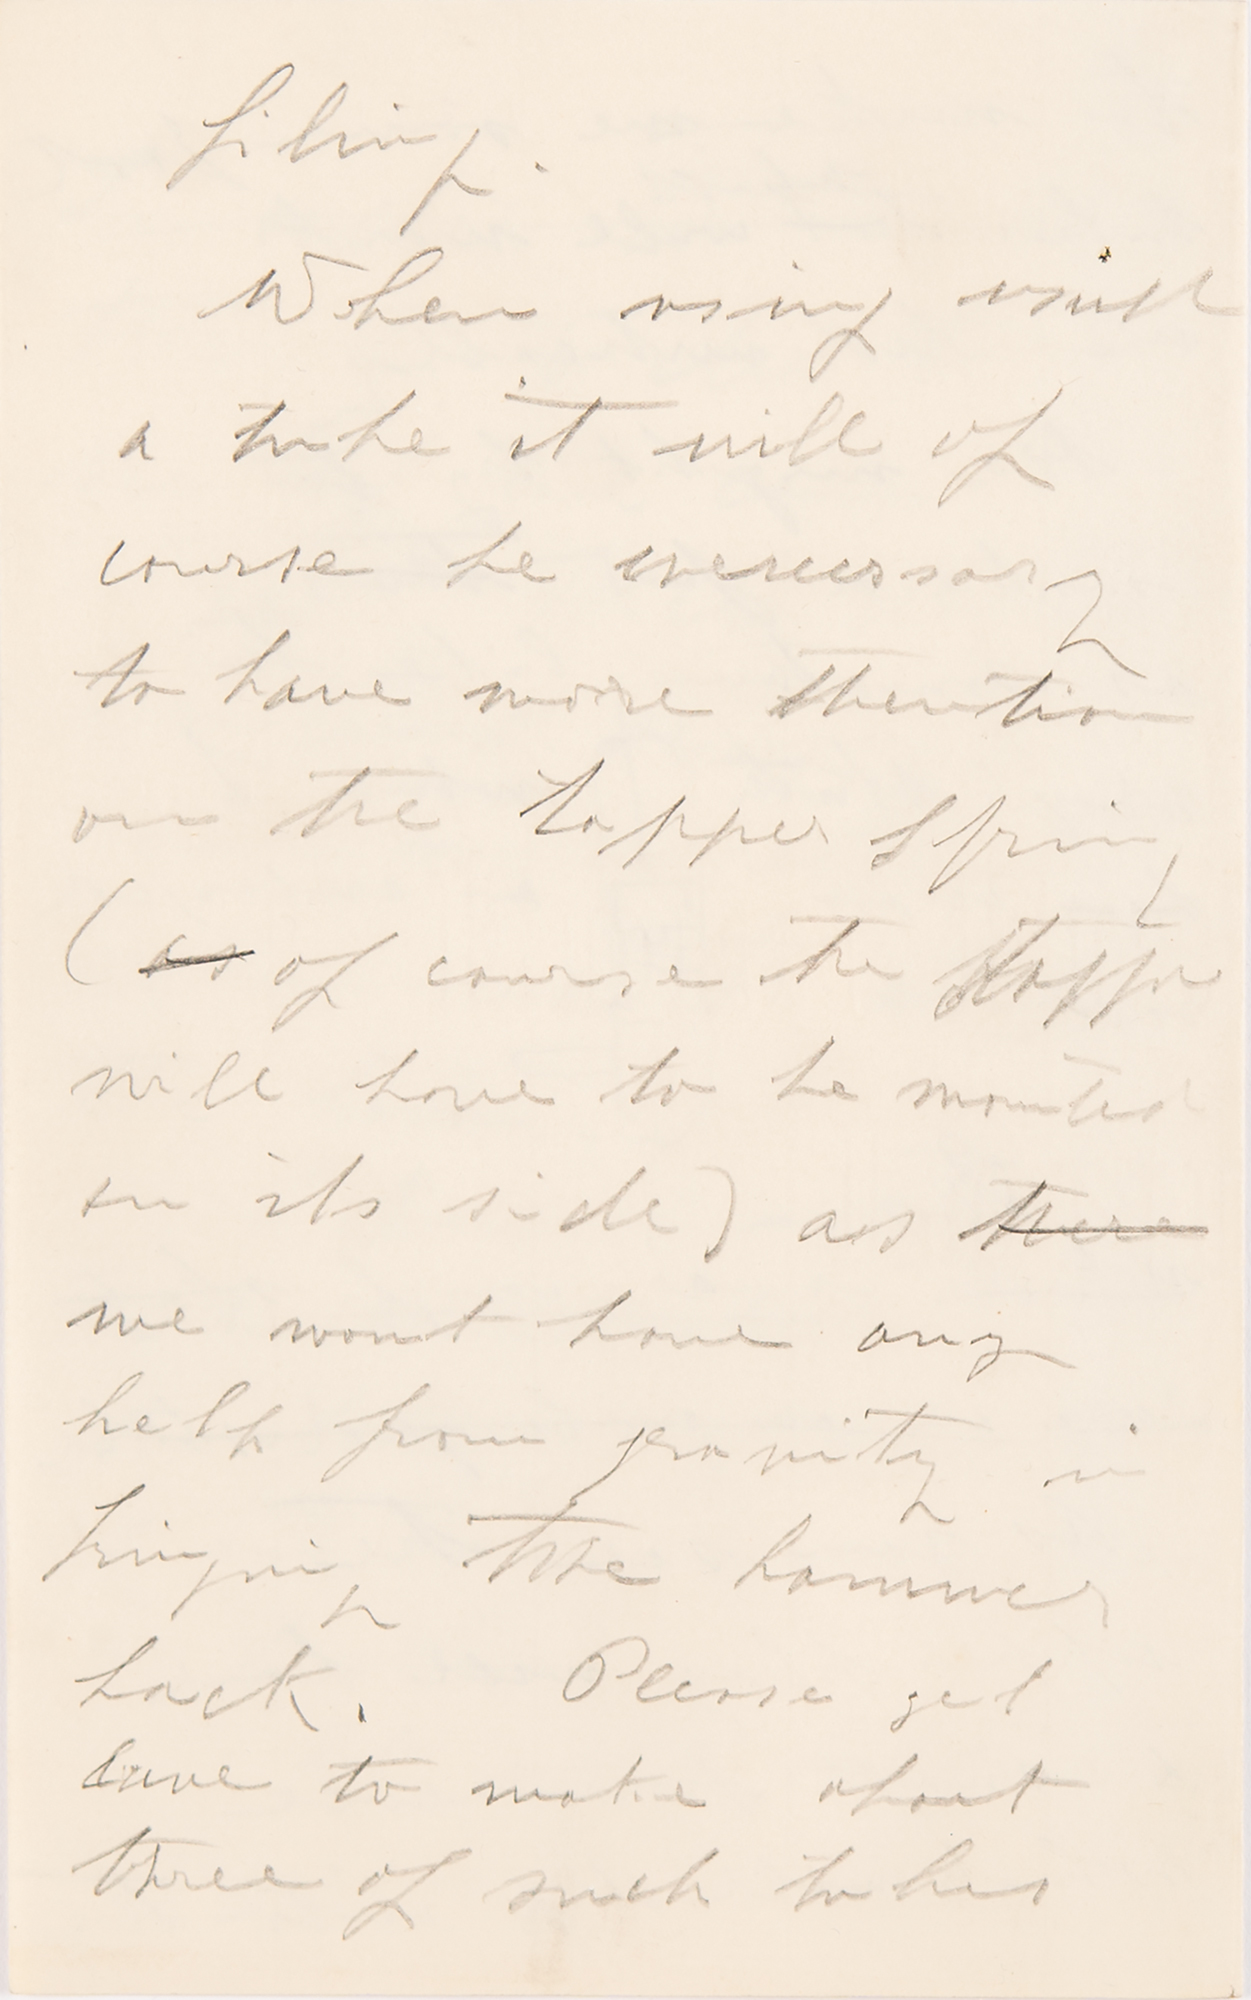 filing.
When using such
a tube it will of
course be necessary
to have more tention
on the tapper spring
(as of course the tapper
will have to be mounted
on its side) as there
we wont have any
help from gravity in
bringing the hammer
back. Please get
Cave to make about
three of such tubes